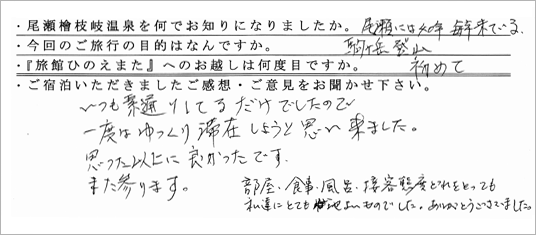 ・尾瀬檜枝岐温泉を何でお知りになりましたか。尾瀬には 毎年来ている。
・今回のご旅行の目的はなんですか。 駒ヶ岳登山
・『旅館ひのえまた』へのお越しは何度目ですか。 初めて
・ご宿泊いただきましたご感想・ご意見をお聞かせ下さい。
いつも素通りしてるだけでしたので
一度はゆっくり滞在しようと思い来ました。
思った以上に良かったです.
また参ります。
部屋・食事・風呂・接客態度どれをとっても
私達にとても よいものでした。ありがとうございました。